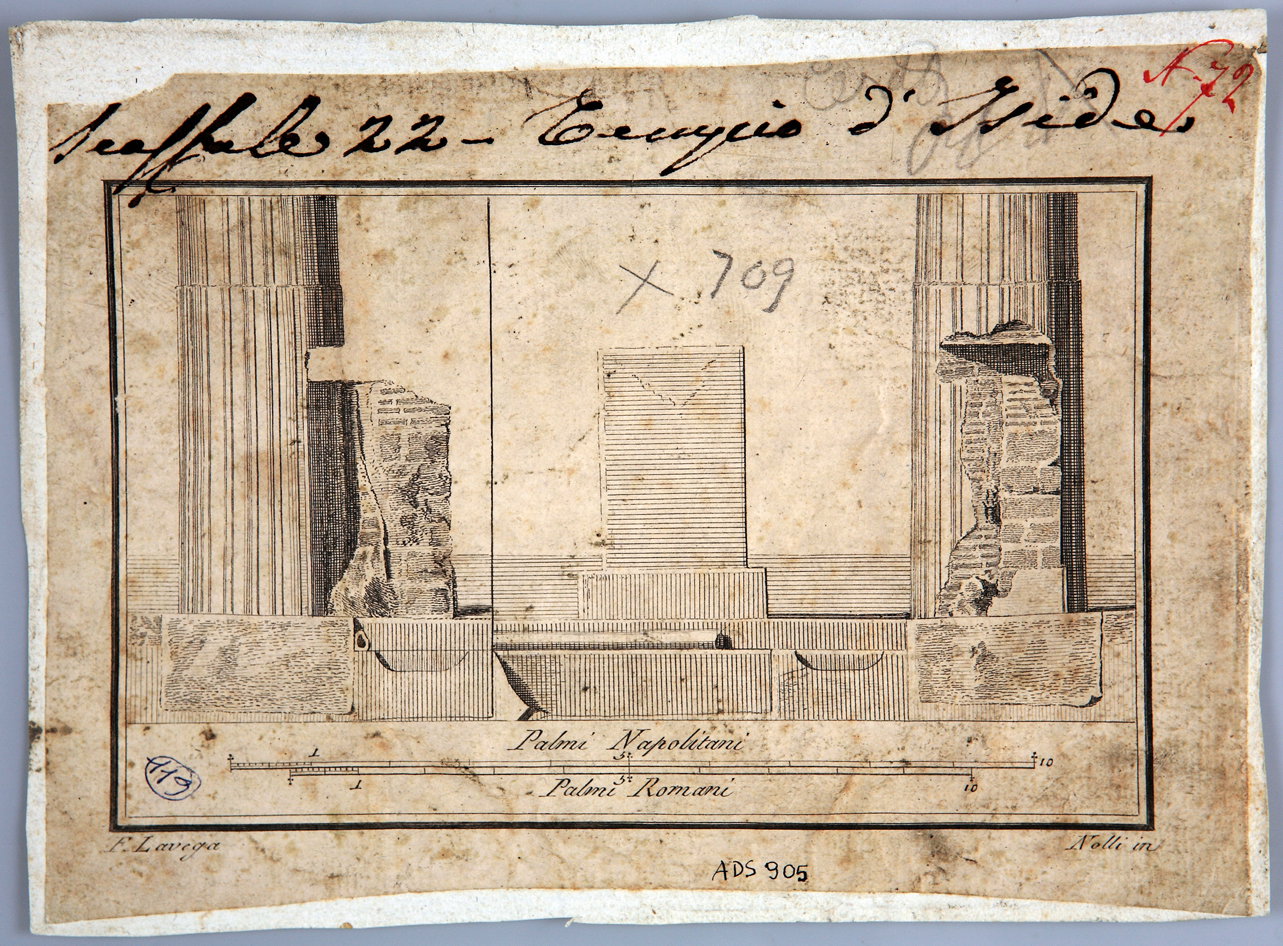 N. 72
Scaffale 22 - Tempio d'Iside
X 709
Palmi Napolitani
1 5 10
1 5 10
Palmi Romani
119
F. Lavega Nolli in
ADS 905